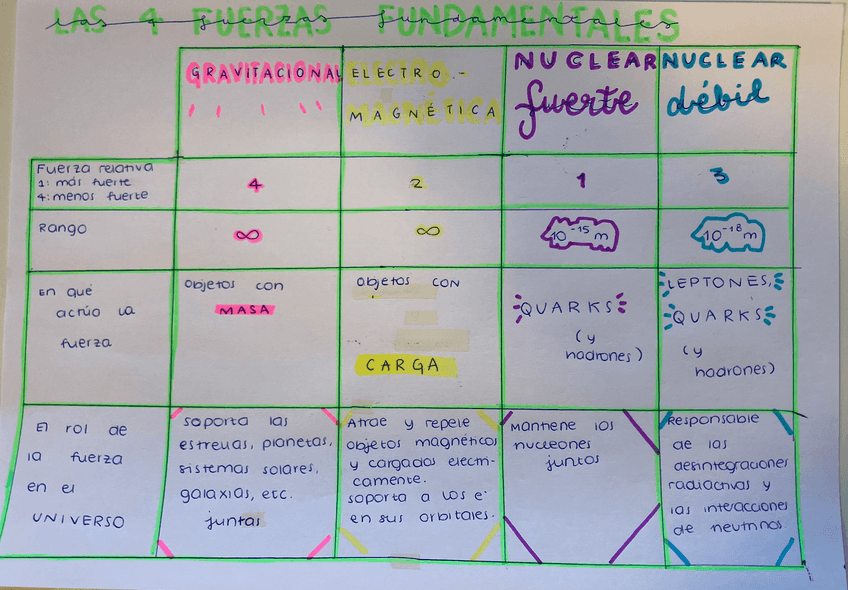 LAS 4 FUERZAS FUNDAMENTALES
las 4 fuerzas fundamentales
GRAVITACIONAL
ELECTRO-
MAGNÉTICA
NUCLEAR
fuerte
NUCLEAR
débil
Fuerza relativa
1: más fuerte
4: menos fuerte
4
2
1
3
Rango
∞
∞
10⁻¹⁵ m
10⁻¹⁸ m
En qué
actúo la
fuerza
Objetos con
MASA
Objetos con
CARGA
QUARKS
(y
hadrones)
LEPTONES,
QUARKS
(y
hadrones)
El rol de
la fuerza
en el
UNIVERSO
soporta las
estrellas, planetas,
sistemas solares,
galaxias, etc.
juntas
Atrae y repele
objetos magnéticos
y cargados electri-
camente.
soporta a los e⁻
en sus orbitales.
Mantiene los
nucleones
juntos
Responsable
de las
desintegraciones
radiactivas y
las interacciones
de neutrinos.